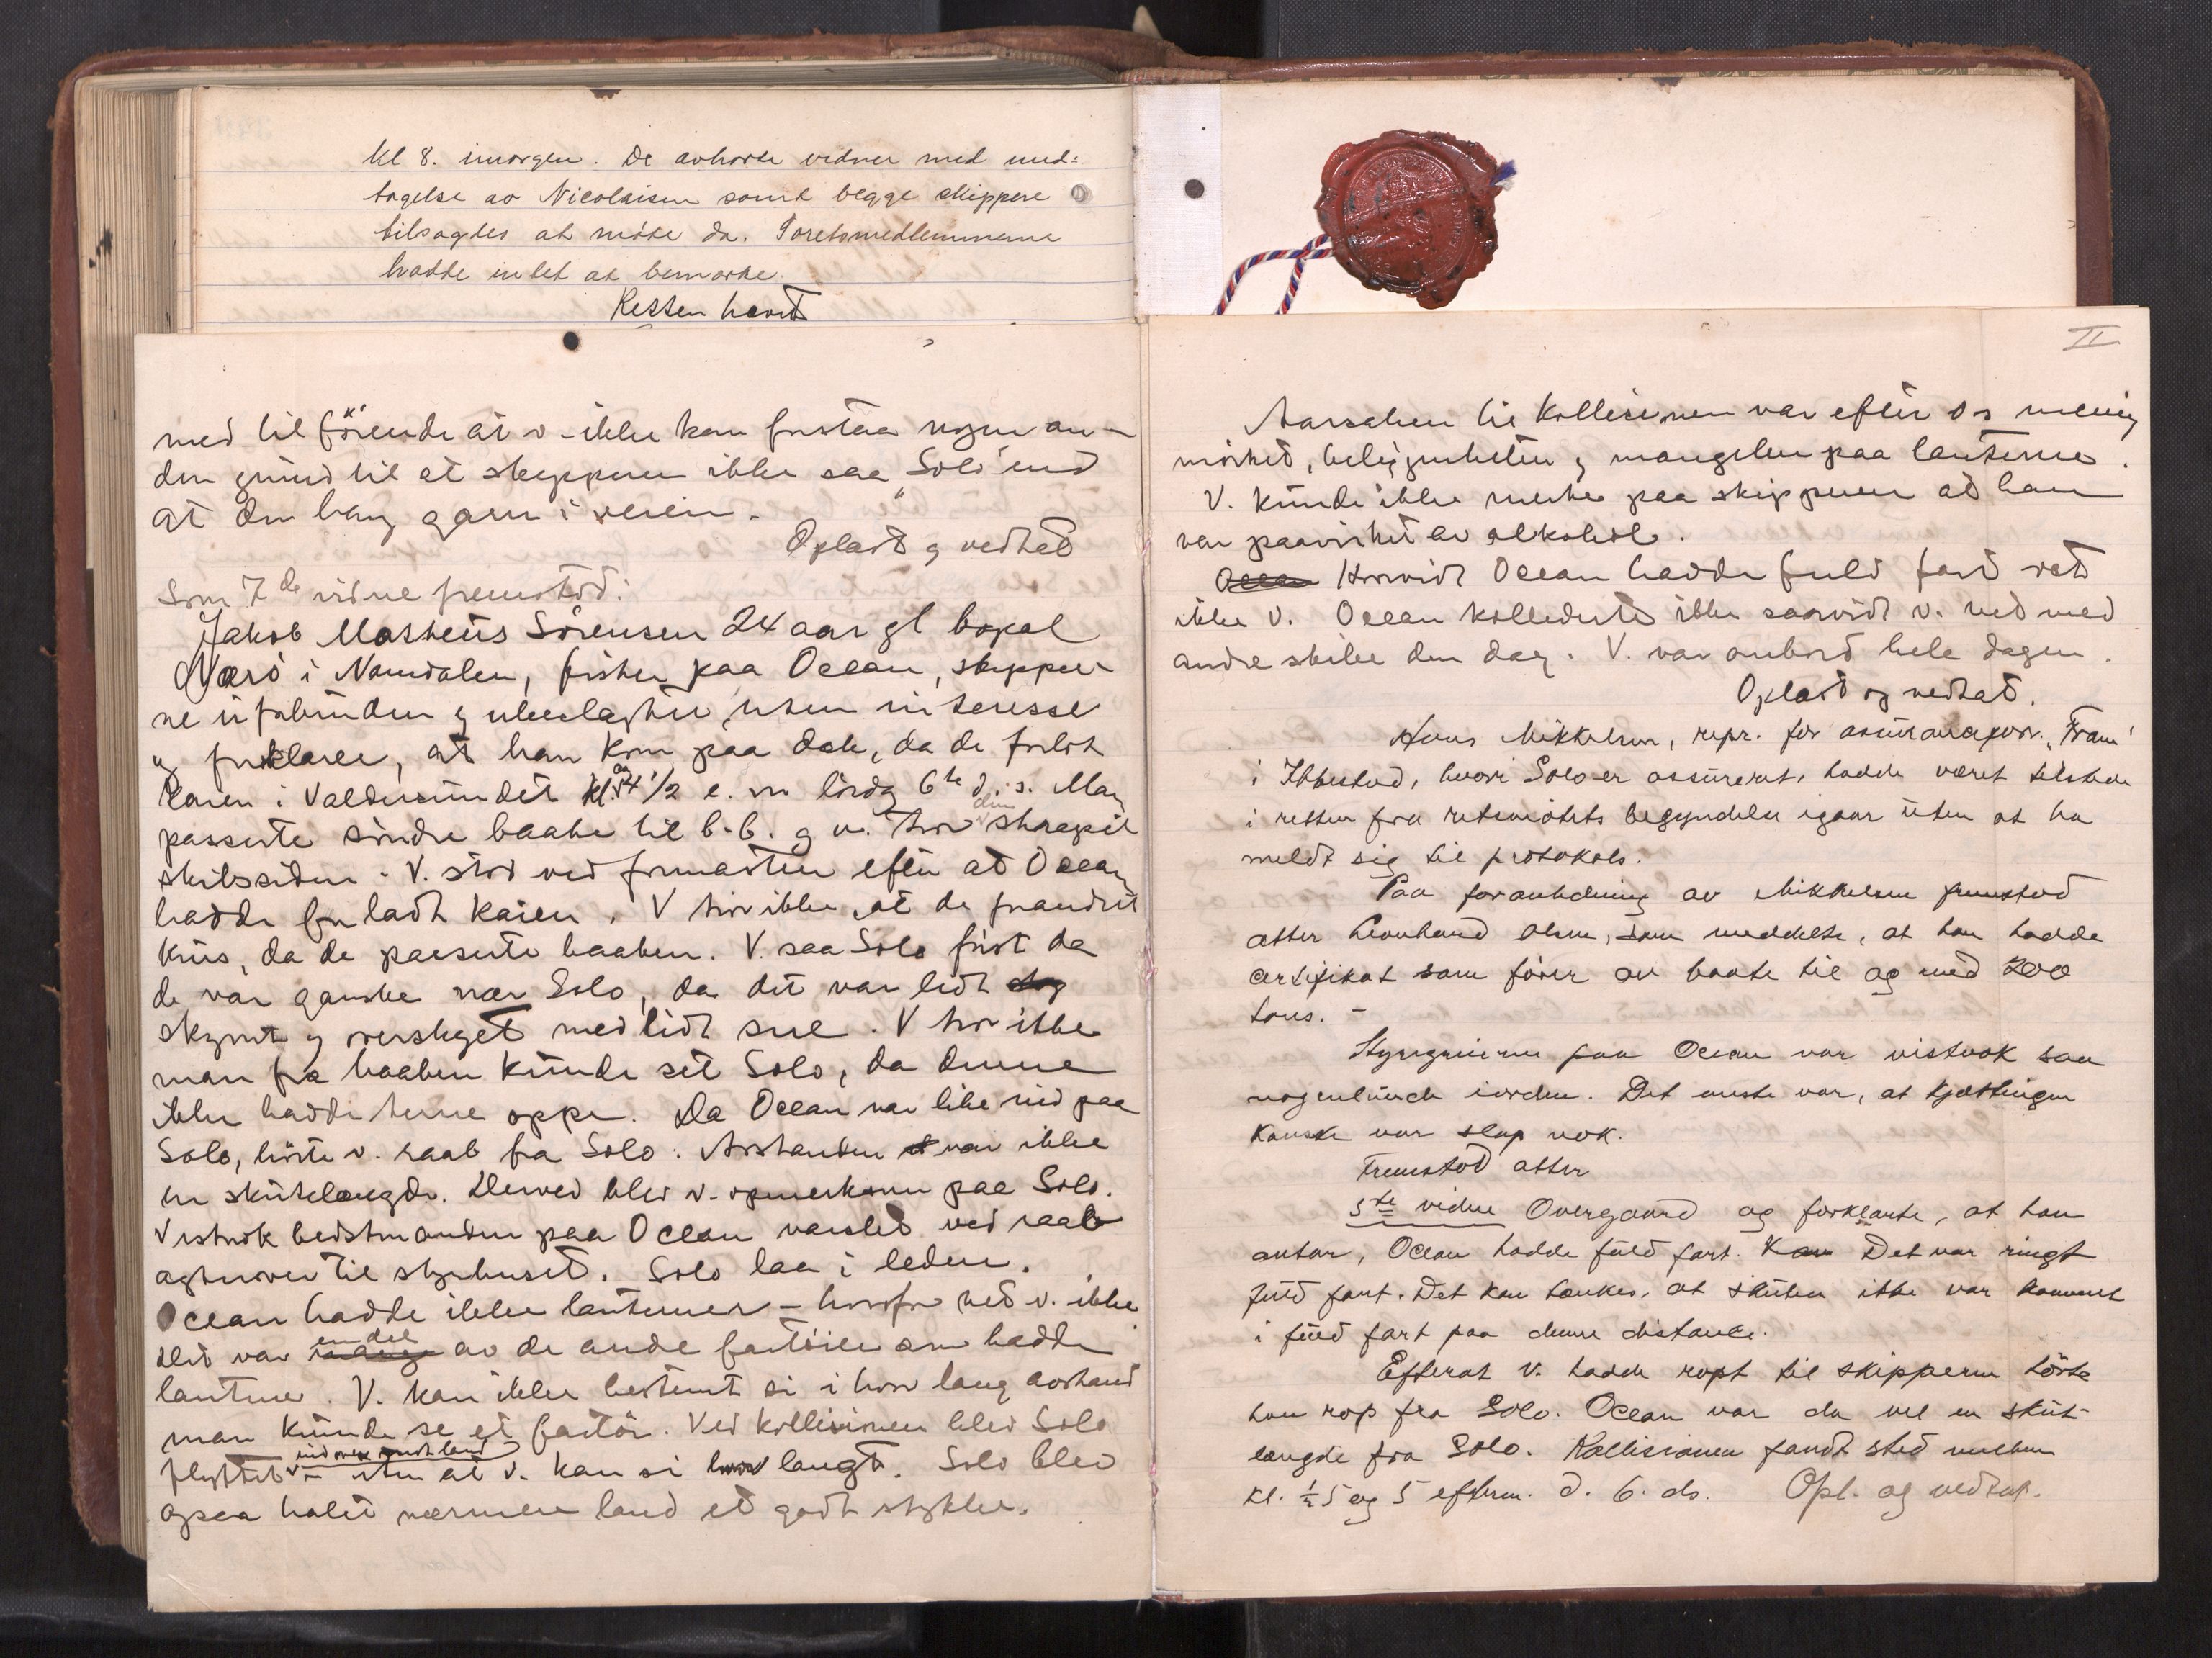 kl 8. imorgen. De avhørte vidner med und-
tagelse av Nicolaisen samt begge skippere
tilsagdes at møte da. Søretsmedlemmerne
hadde intet at bemærke.
Retten hævet
med tilføiende at v. ikke kan forstaa nogen an-
den grund til at skipperen ikke saa "Solo" end
at den hang garn i veien.
Oplæst og vedtat
Som 7de vidne fremstod:
Jakob Matheus Sørensen 24 aar gl bopæl
Nærø i Namdalen, fisker paa Ocean, skippe-
ne uforbunden og ubeslægtet, uten interesse
og forklarer, at han kom paa dæk, da de forlot
kaien i Valdersundet kl. ca 4 1/2 e. m lørdag 6te d.s. Man
passerte søndre baake til b.b. og v. tror den skrapet
skibssiden. V. stod ved formasten efter at Ocean
hadde forladt kaien. V tror ikke, at de forandret
kurs, da de passerte baaken. V. saa Solo først da
de var ganske nær Solo, da det var lidt
skymt og overskyet med lidt sne. V tror ikke
man fra baaken kunde set Solo, da denne
ikke hadde terne oppe. Da Ocean var like ind paa
Solo, hørte v. raab fra Solo. Avstanden var ikke
en skutelængde. Derved blev v. opmerksom paa Solo.
Vistnok bedstmanden paa Ocean varslet ved raab
agterover til styrhuset. Solo laa i leden.
Ocean hadde ikke lanterner - hvorfor ved v. ikke
Det var en del av de andre fartøier som hadde
lanterne. V. kan ikke bestemt si i hvor lang avstand
man kunde se et fartøi. Ved kollisionen blev Solo
indover mot land
flyttet - uten at v. kan si hvor langt. Solo blev
ogsaa halet nærmere land et godt stykke.
II
Aarsaken til kollisionen var efter v.s mening
mørket, beliggenheten og mangelen paa lanterne.
V. kunde ikke merke paa skipperen at han
var paavirket av alkohol.
Hvorvidt Ocean hadde fuld fart vet
ikke v. Ocean kolliderte ikke saavidt v. ved med
andre skibe den dag. V. var ombord hele dagen.
Oplæst og vedtat.
Hans Mikkelsen, repr. for assuranceforr. "Fram"
i Ibbestad, hvori Solo er assureret, hadde været tilstede
i retten fra retsmøtets begyndelse igaar uten at ha
meldt sig til protokols.
Paa foranledning av Mikkelsen fremstod
atter Leonhard Olsen, som meddelte, at han hadde
certifikat som fører av baate til og med 200
tons. -
Styregreierne paa Ocean var vistnok saa
nogenlunde iorden. Det eneste var, at kjættingen
kanske var slap nok.
Fremstod atter
5te vidne Overgaard og forklarte, at han
antar, Ocean hadde fuld fart. Det var ringt
fuld fart. Det kan tænkes, at skuten ikke var kommet
i fuld fart paa denne distance.
Efterat v. hadde ropt til skipperen hørte
han rop fra Solo. Ocean var da vel en skut-
længde fra Solo. Kollisionen fandt sted mellem
kl. 1/2 5 og 5 efterm. d. 6. ds. Opl. og vedtat.